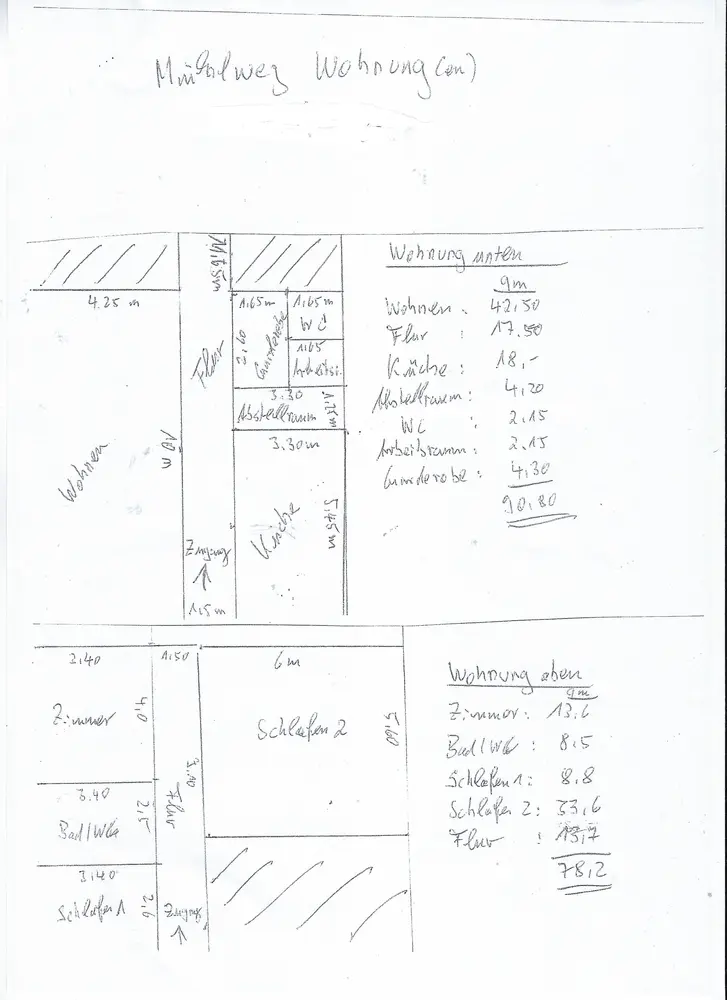 Mühlweg Wohnung(en)
11.65m
4.25 m
1.65m 1.65m
WC
2.60
Garderobe
1.65
Arbeitszi.
Flur
3.30
1.25m
Abstellraum
3.30m
10 m
Wohnen
Küche
5.45m
Zugang
1.5m
Wohnung unten
qm
Wohnen : 42,50
Flur : 17.50
Küche : 18,-
Abstellraum : 4,20
WC : 2.15
Arbeitsraum : 2.15
Garderobe : 4,30
90,80
3,40
1,50
6m
Zimmer
4,0
Schlafen 2
5,60
3.40
2,5
Bad/WC
Flur
3,40
2,6
Schlafen 1
Zugang
Wohnung oben
qm
Zimmer : 13,6
Bad/WC : 8,5
Schlafen 1 : 8,8
Schlafen 2 : 33,6
Flur : 13,7
78,2